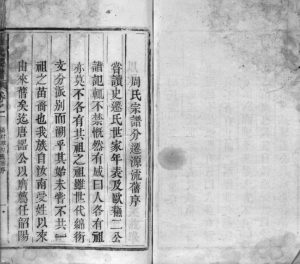 周氏宗譜分遷源流舊序
嘗讀史遷氏世家年表及歐蘇二公
譜記輒不禁慨然有感曰人各有祖
亦莫不各有其祖之祖雖世代綿衍
支分派別而溯乎其始未嘗不共一
祖之苗裔也我族自汝南受姓以來
由來舊矣迄唐諡公以齊薦任韶陽